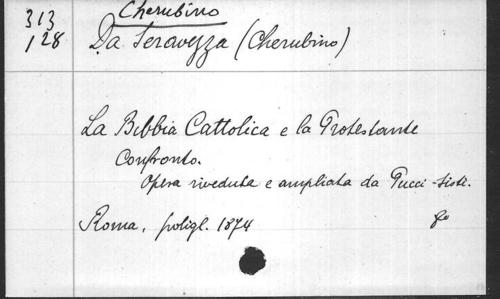 313
128
Cherubino
Da Seravezza (Cherubino)
La Bibbia Cattolica e la Protestante
Confronto.
Opera riveduta e ampliata da Pucci-Sisti.
Roma, poligl. 1874
8o